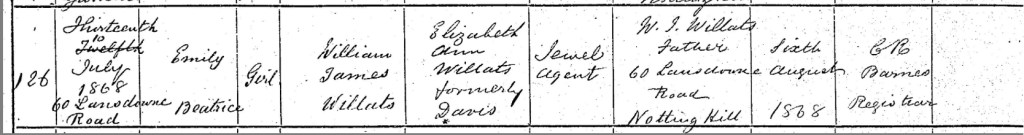 126
Thirteenth
10
Twelfth
July
1868
60 Lansdowne
Road
Emily
Beatrice
Girl
William
James
Willats
Elizabeth
Ann
Willats
formerly
Davis
Jewel
Agent
W. J. Willats
Father
60 Lansdowne
Road
Notting Hill
Sixth
August
1868
Barnes
Registrar